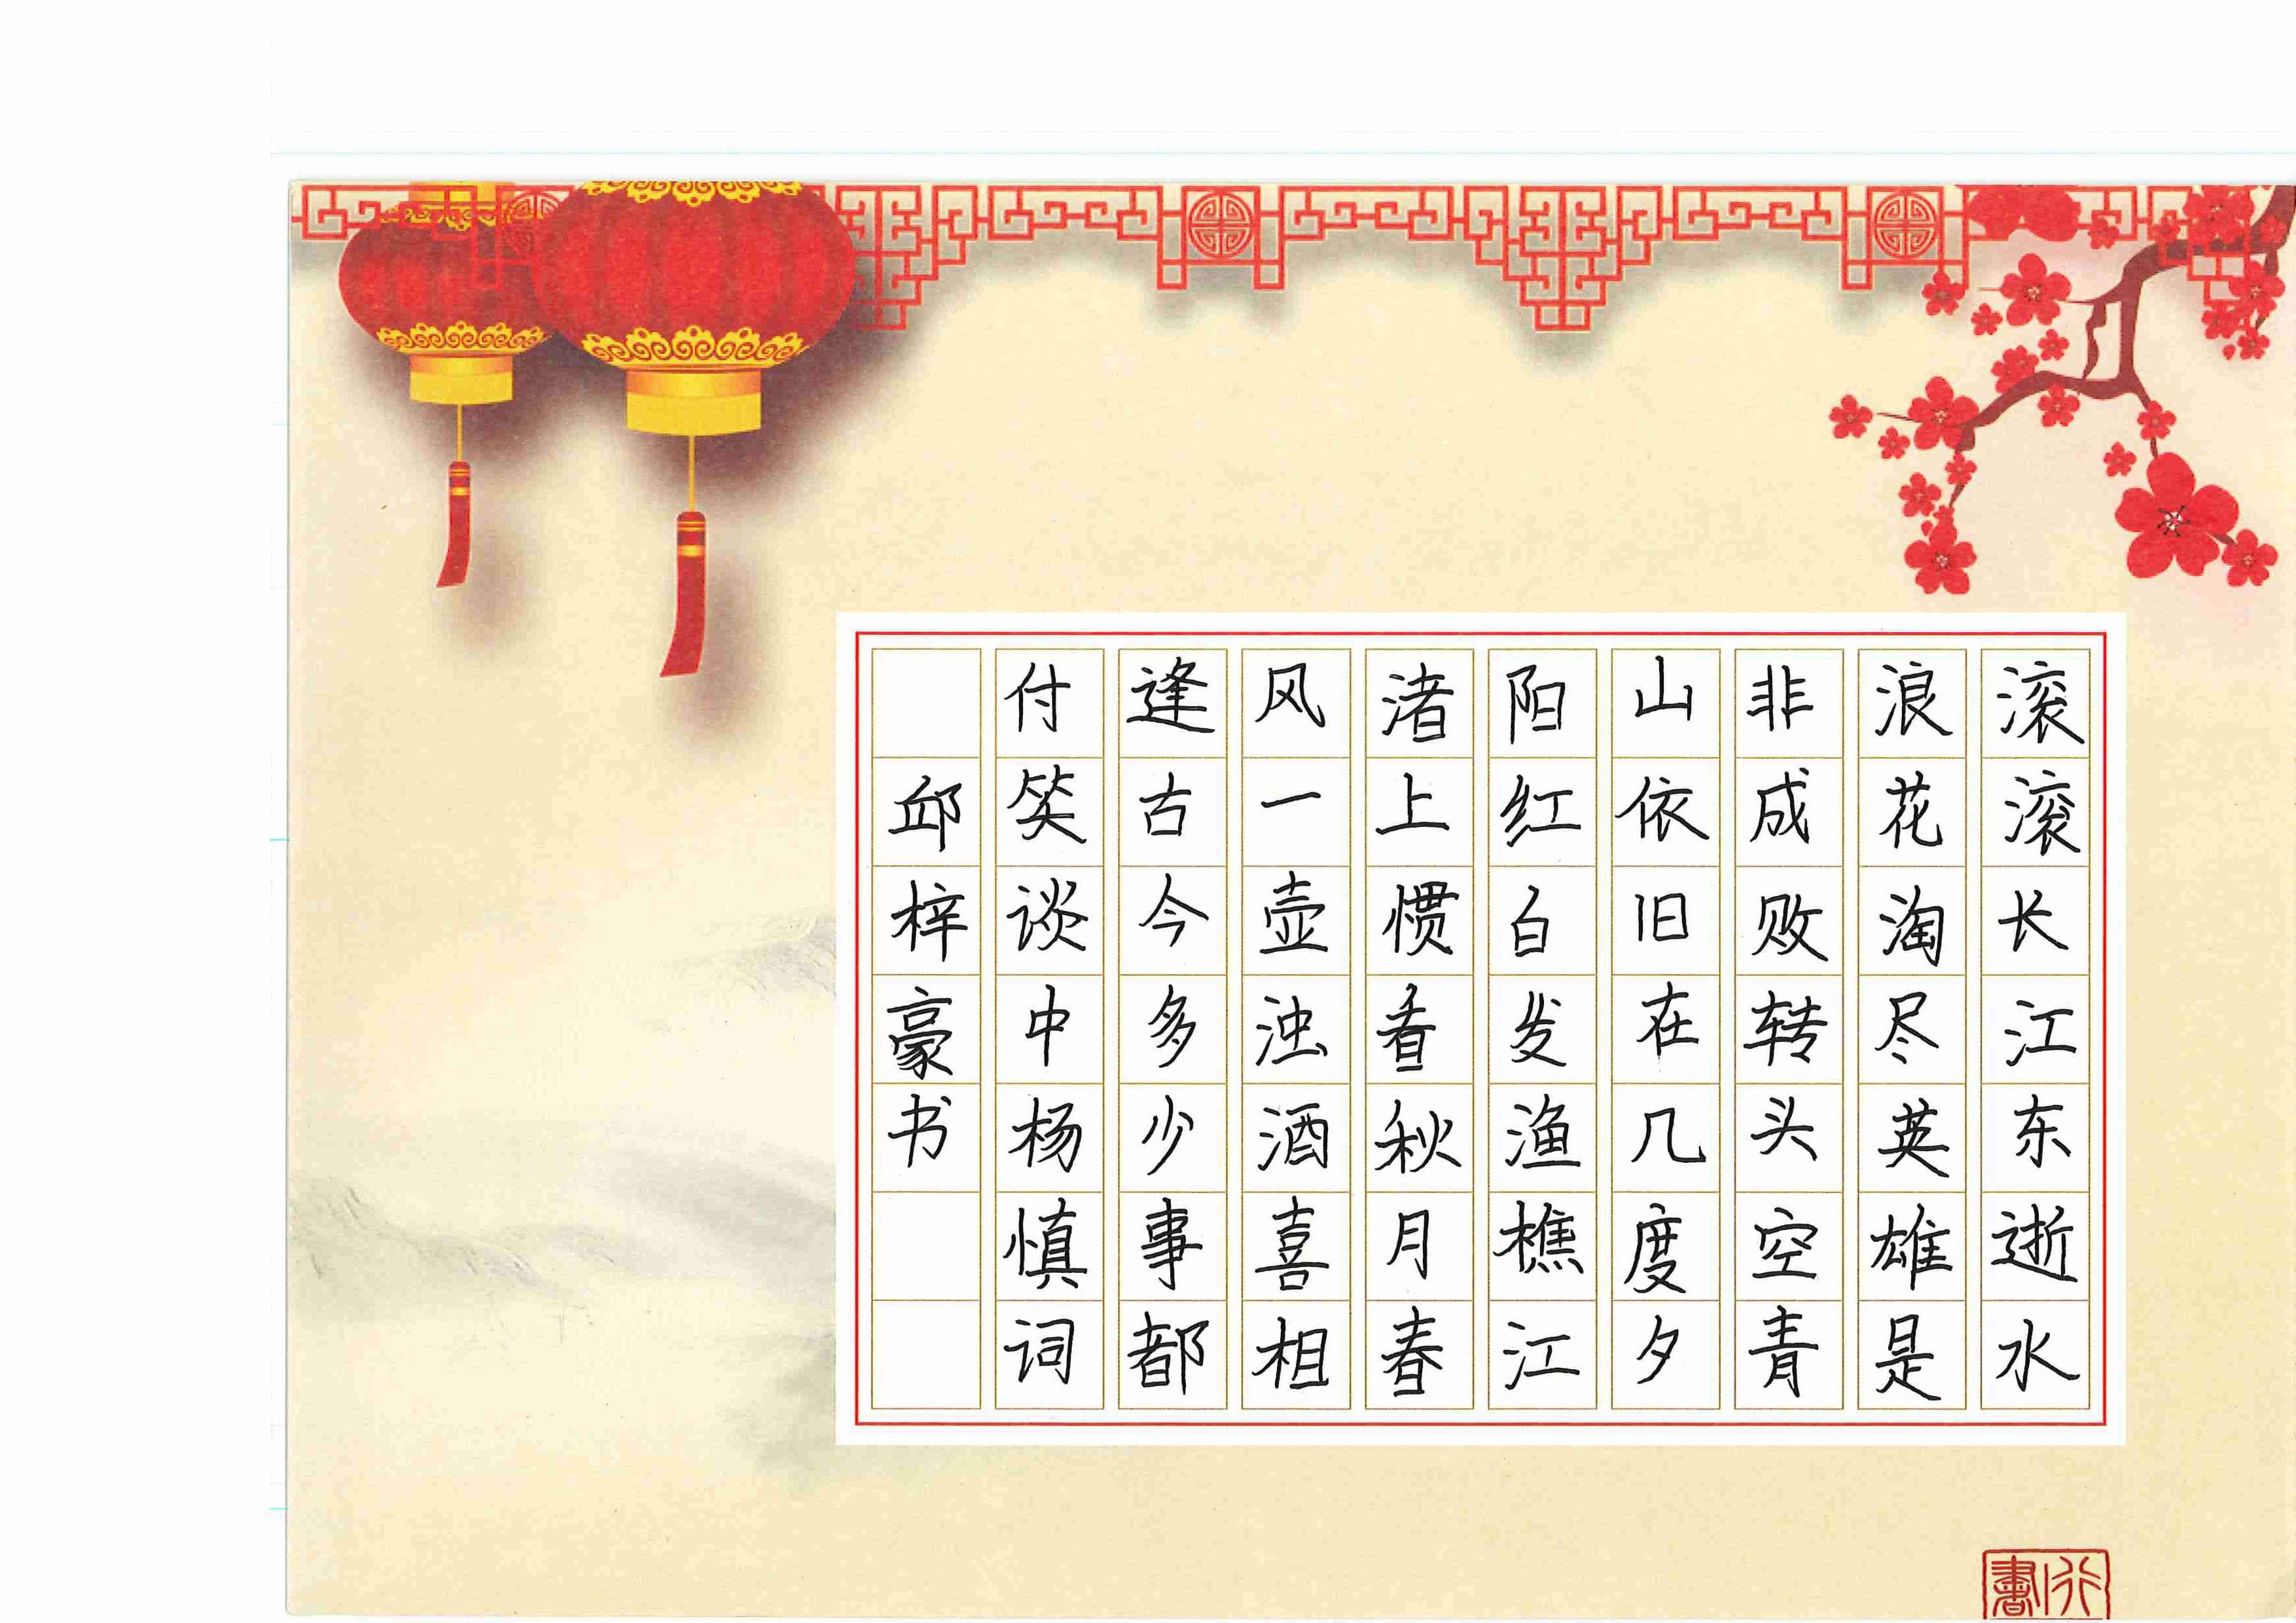 滚滚长江东逝水
浪花淘尽英雄是
非成败转头空青
山依旧在几度夕
阳红白发渔樵江
渚上惯看秋月春
风一壶浊酒喜相
逢古今多少事都
付笑谈中杨慎词
邱梓豪书
行書